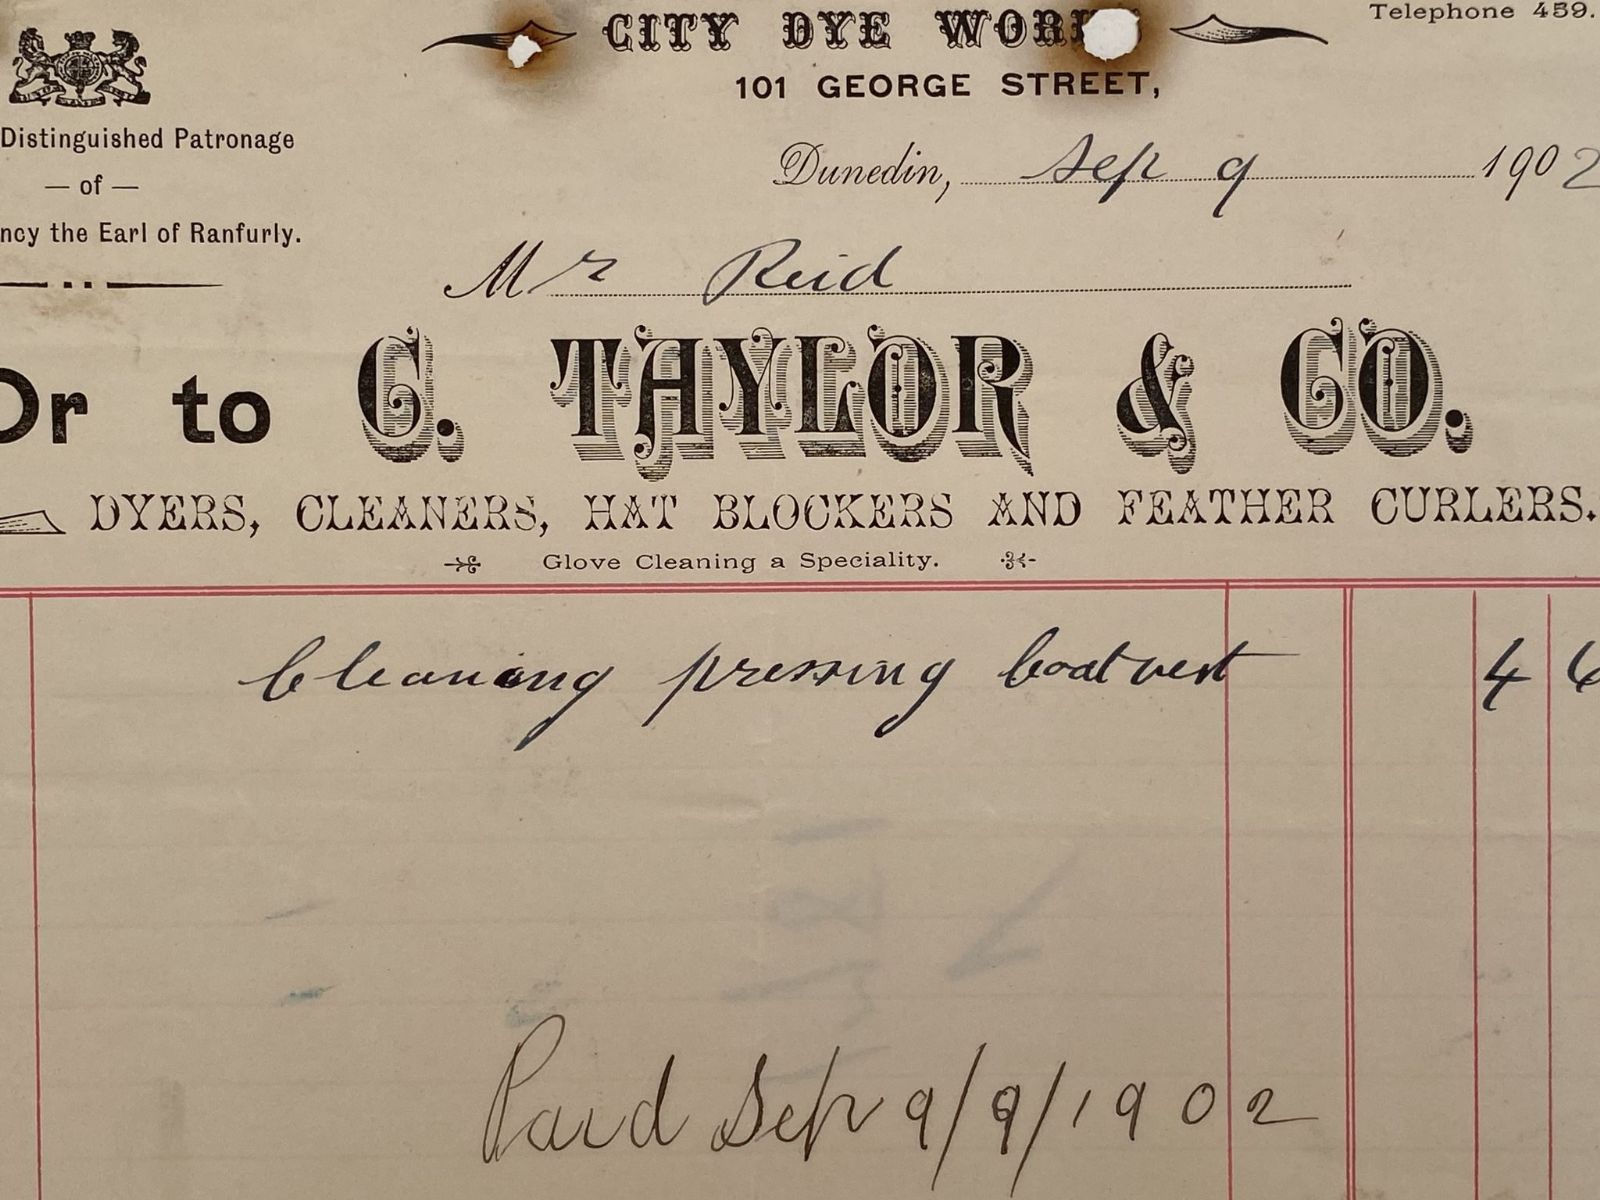 CITY DYE WOR
Telephone 459.
101 GEORGE STREET,
Distinguished Patronage
— of —
ncy the Earl of Ranfurly.
Dunedin, Sep 9 1902
Mr Reid
Dr to C. TAYLOR & CO.
DYERS, CLEANERS, HAT BLOCKERS AND FEATHER CURLERS.
Glove Cleaning a Speciality.
Cleaning pressing Coat vest 4 6
Paid Sep 9/9/1902